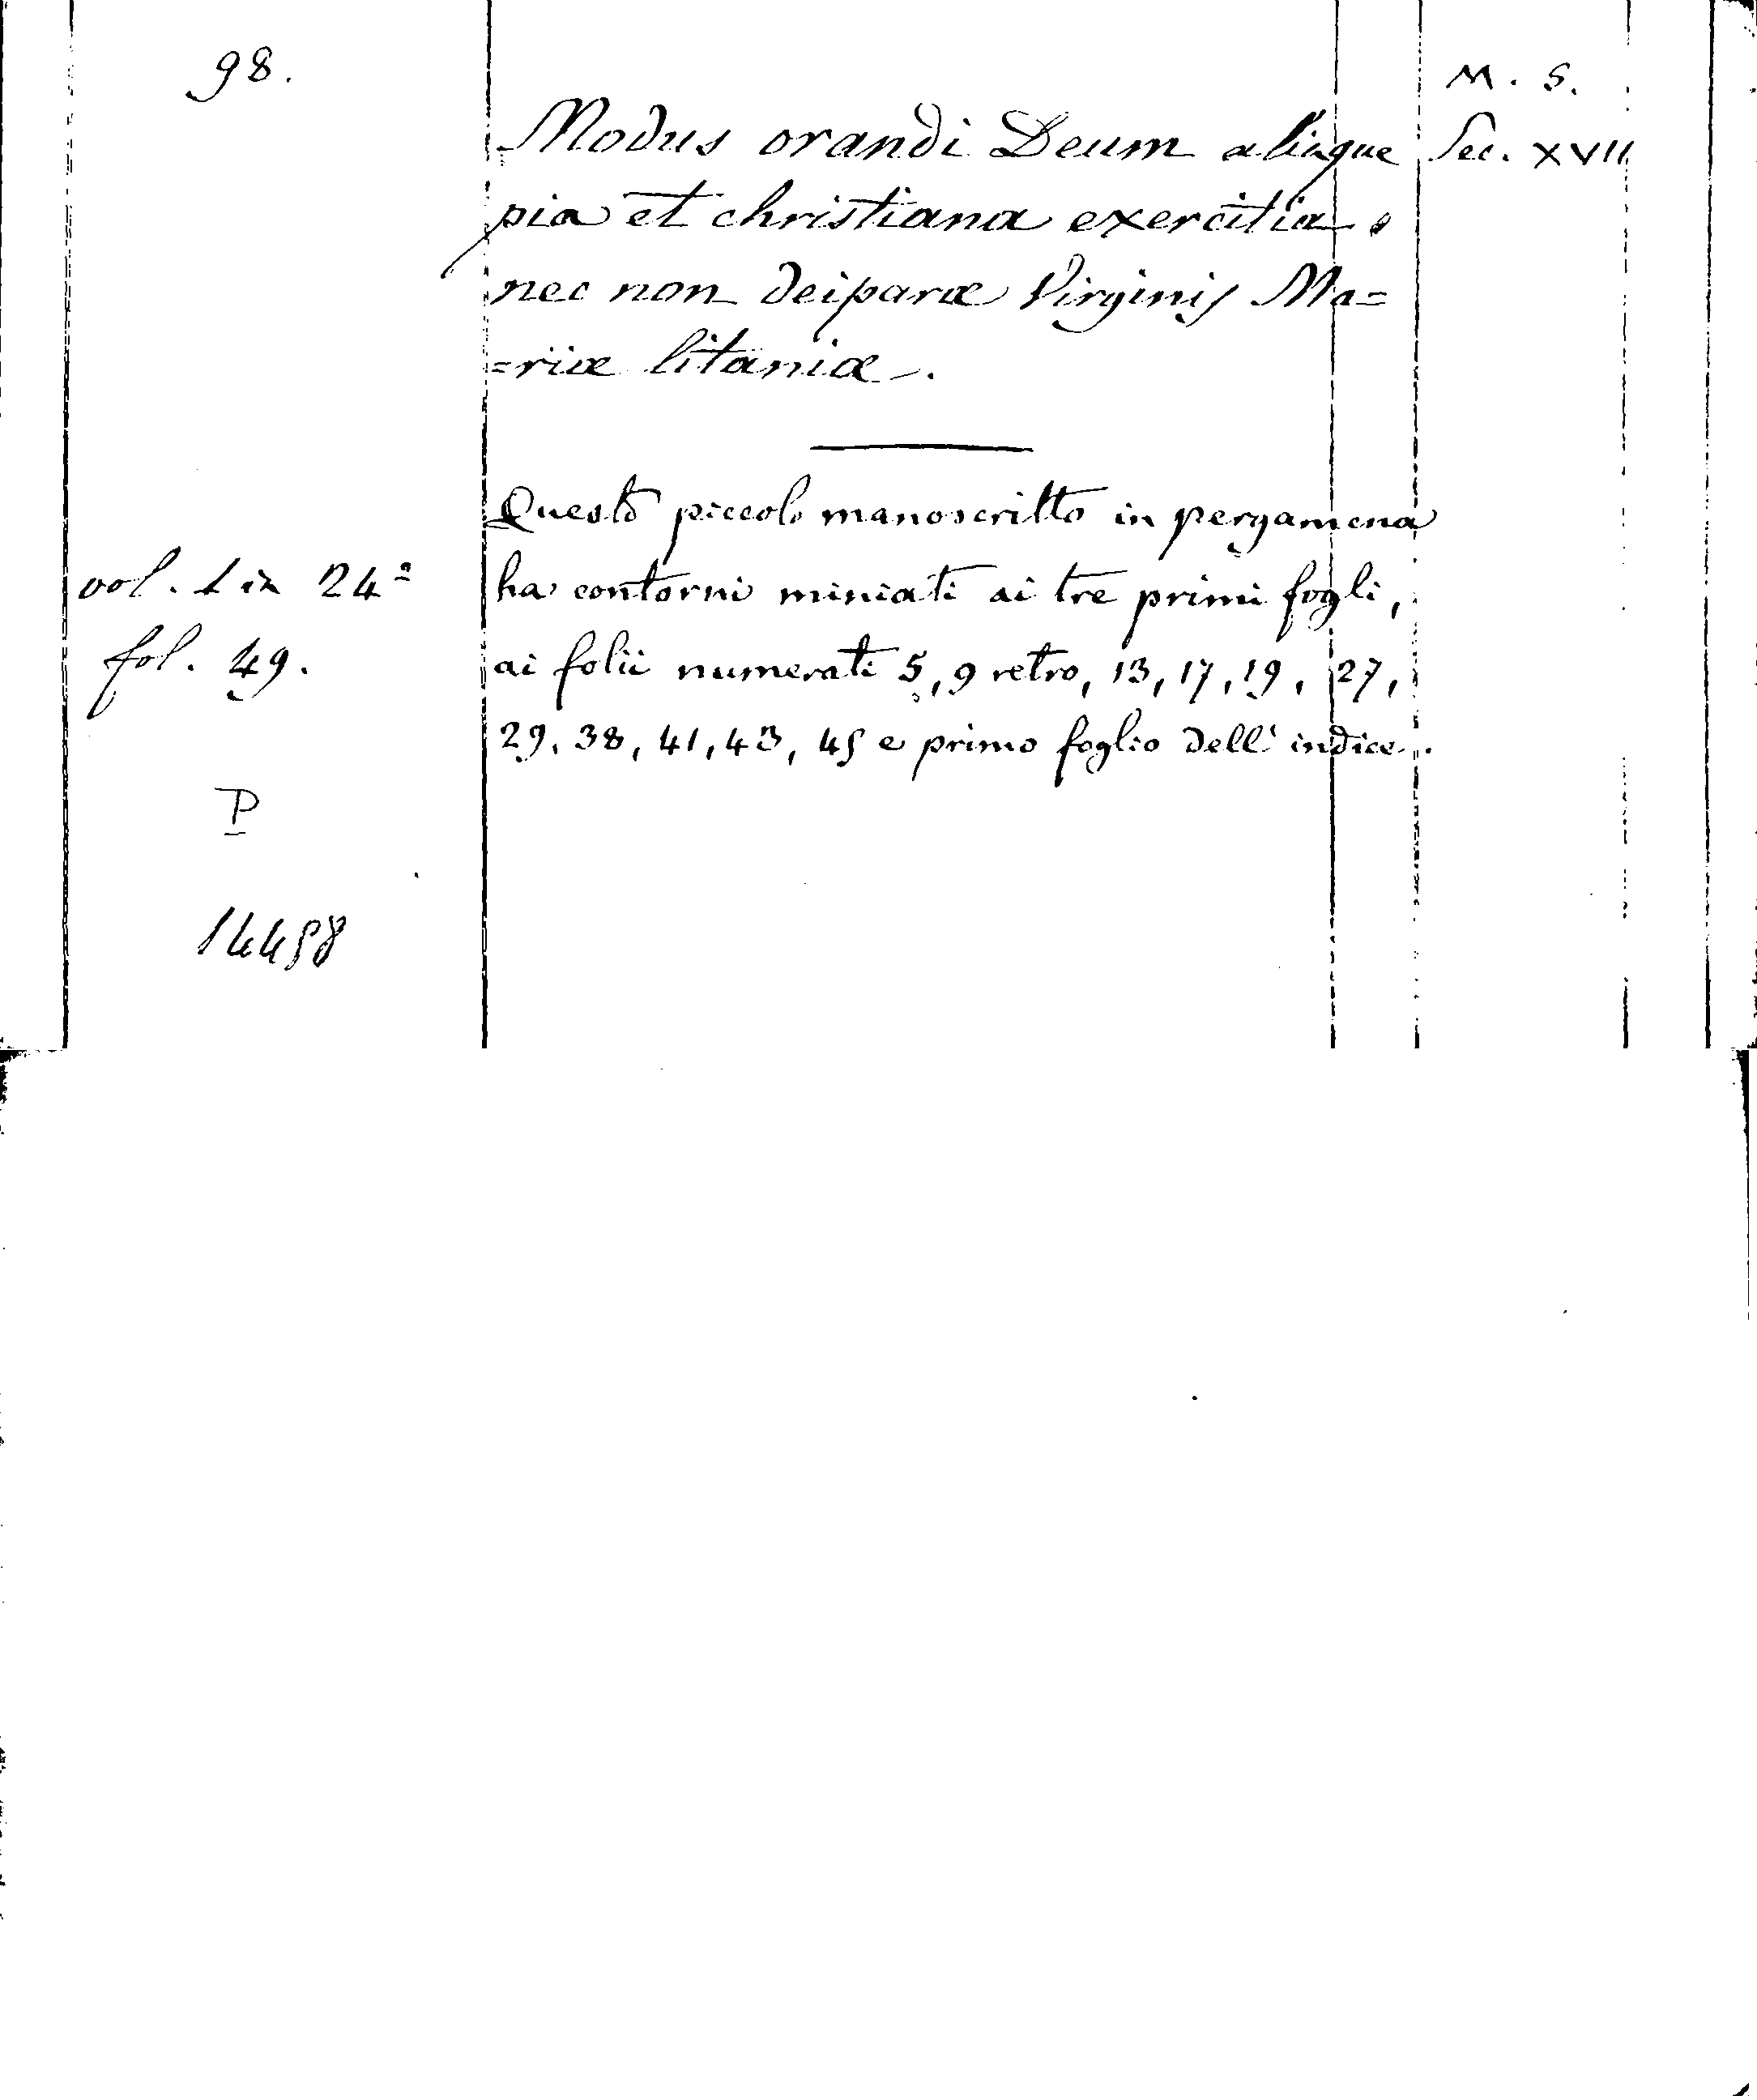 98.
M. S.
Modus orandi Deum aliaque
Sec. XVII
pia et christiana exercitia,
nec non deiparæ Virginis Ma=
=riæ litaniæ.
Questo piccolo manoscritto in pergamena
vol. 1 in 24º
ha contorni miniati ai tre primi fogli,
fol. 49.
ai folii numerati 5, 9 retro, 13, 17, 19, 27,
29, 38, 41, 43, 45 e primo foglio dell'indice.
P
14458